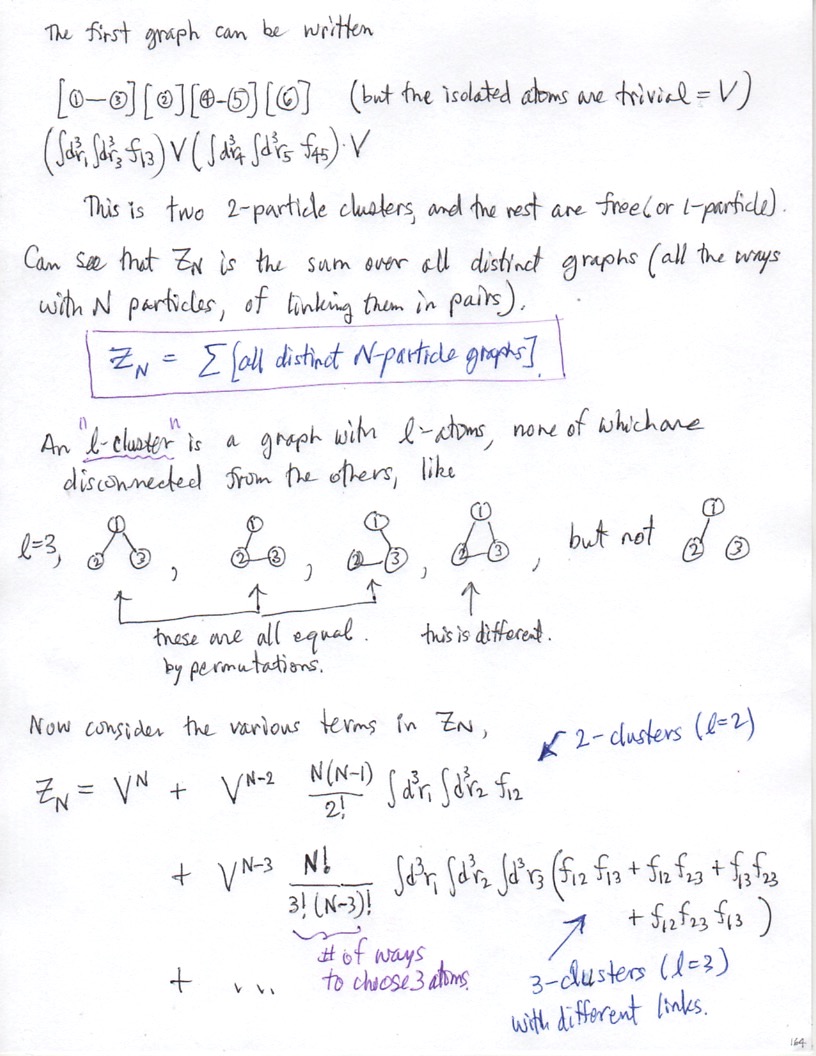 The first graph can be written
[①—③][②][④-⑤][⑥] (but the isolated atoms are trivial = V)
(∫d³r₁∫d³r₃ f₁₃) V (∫d³r₄ ∫d³r₅ f₄₅)·V
This is two 2-particle clusters, and the rest are free (or 1-particle).
Can see that Z_N is the sum over all distinct graphs (all the ways
with N particles, of linking them in pairs).
Z_N = Σ [all distinct N-particle graphs].
An "l-cluster" is a graph with l-atoms, none of which are
disconnected from the others, like
l=3, ① ② ③ , ① ② ③ , ① ② ③ , ① ② ③ , but not ① ② ③
these are all equal. this is different.
by permutations.
Now consider the various terms in Z_N,
2-clusters (l=2)
Z_N = V^N + V^{N-2} N(N-1)/2! ∫d³r₁ ∫d³r₂ f₁₂
+ V^{N-3} N!/3!(N-3)! ∫d³r₁ ∫d³r₂ ∫d³r₃ (f₁₂ f₁₃ + f₁₂ f₂₃ + f₁₃ f₂₃
+ f₁₂ f₂₃ f₁₃ )
# of ways
to choose 3 atoms.
3-clusters (l=3)
with different links.
+ ...
164